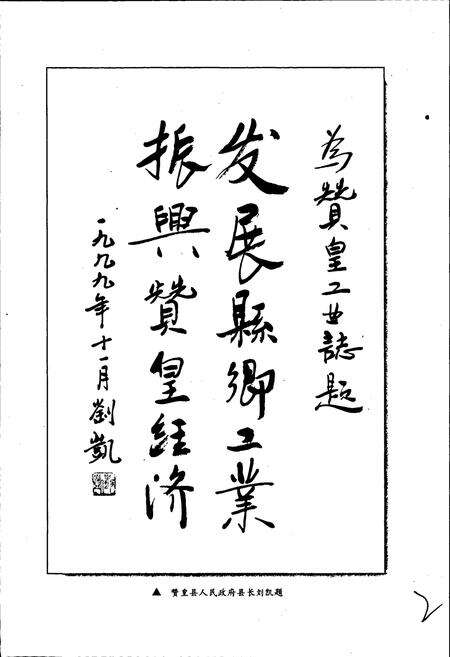 为賛皇工业誌题
发展縣鄉工業
振興賛皇経济
一九九九年十一月劉凱
▲ 赞皇县人民政府县长刘凯题
2